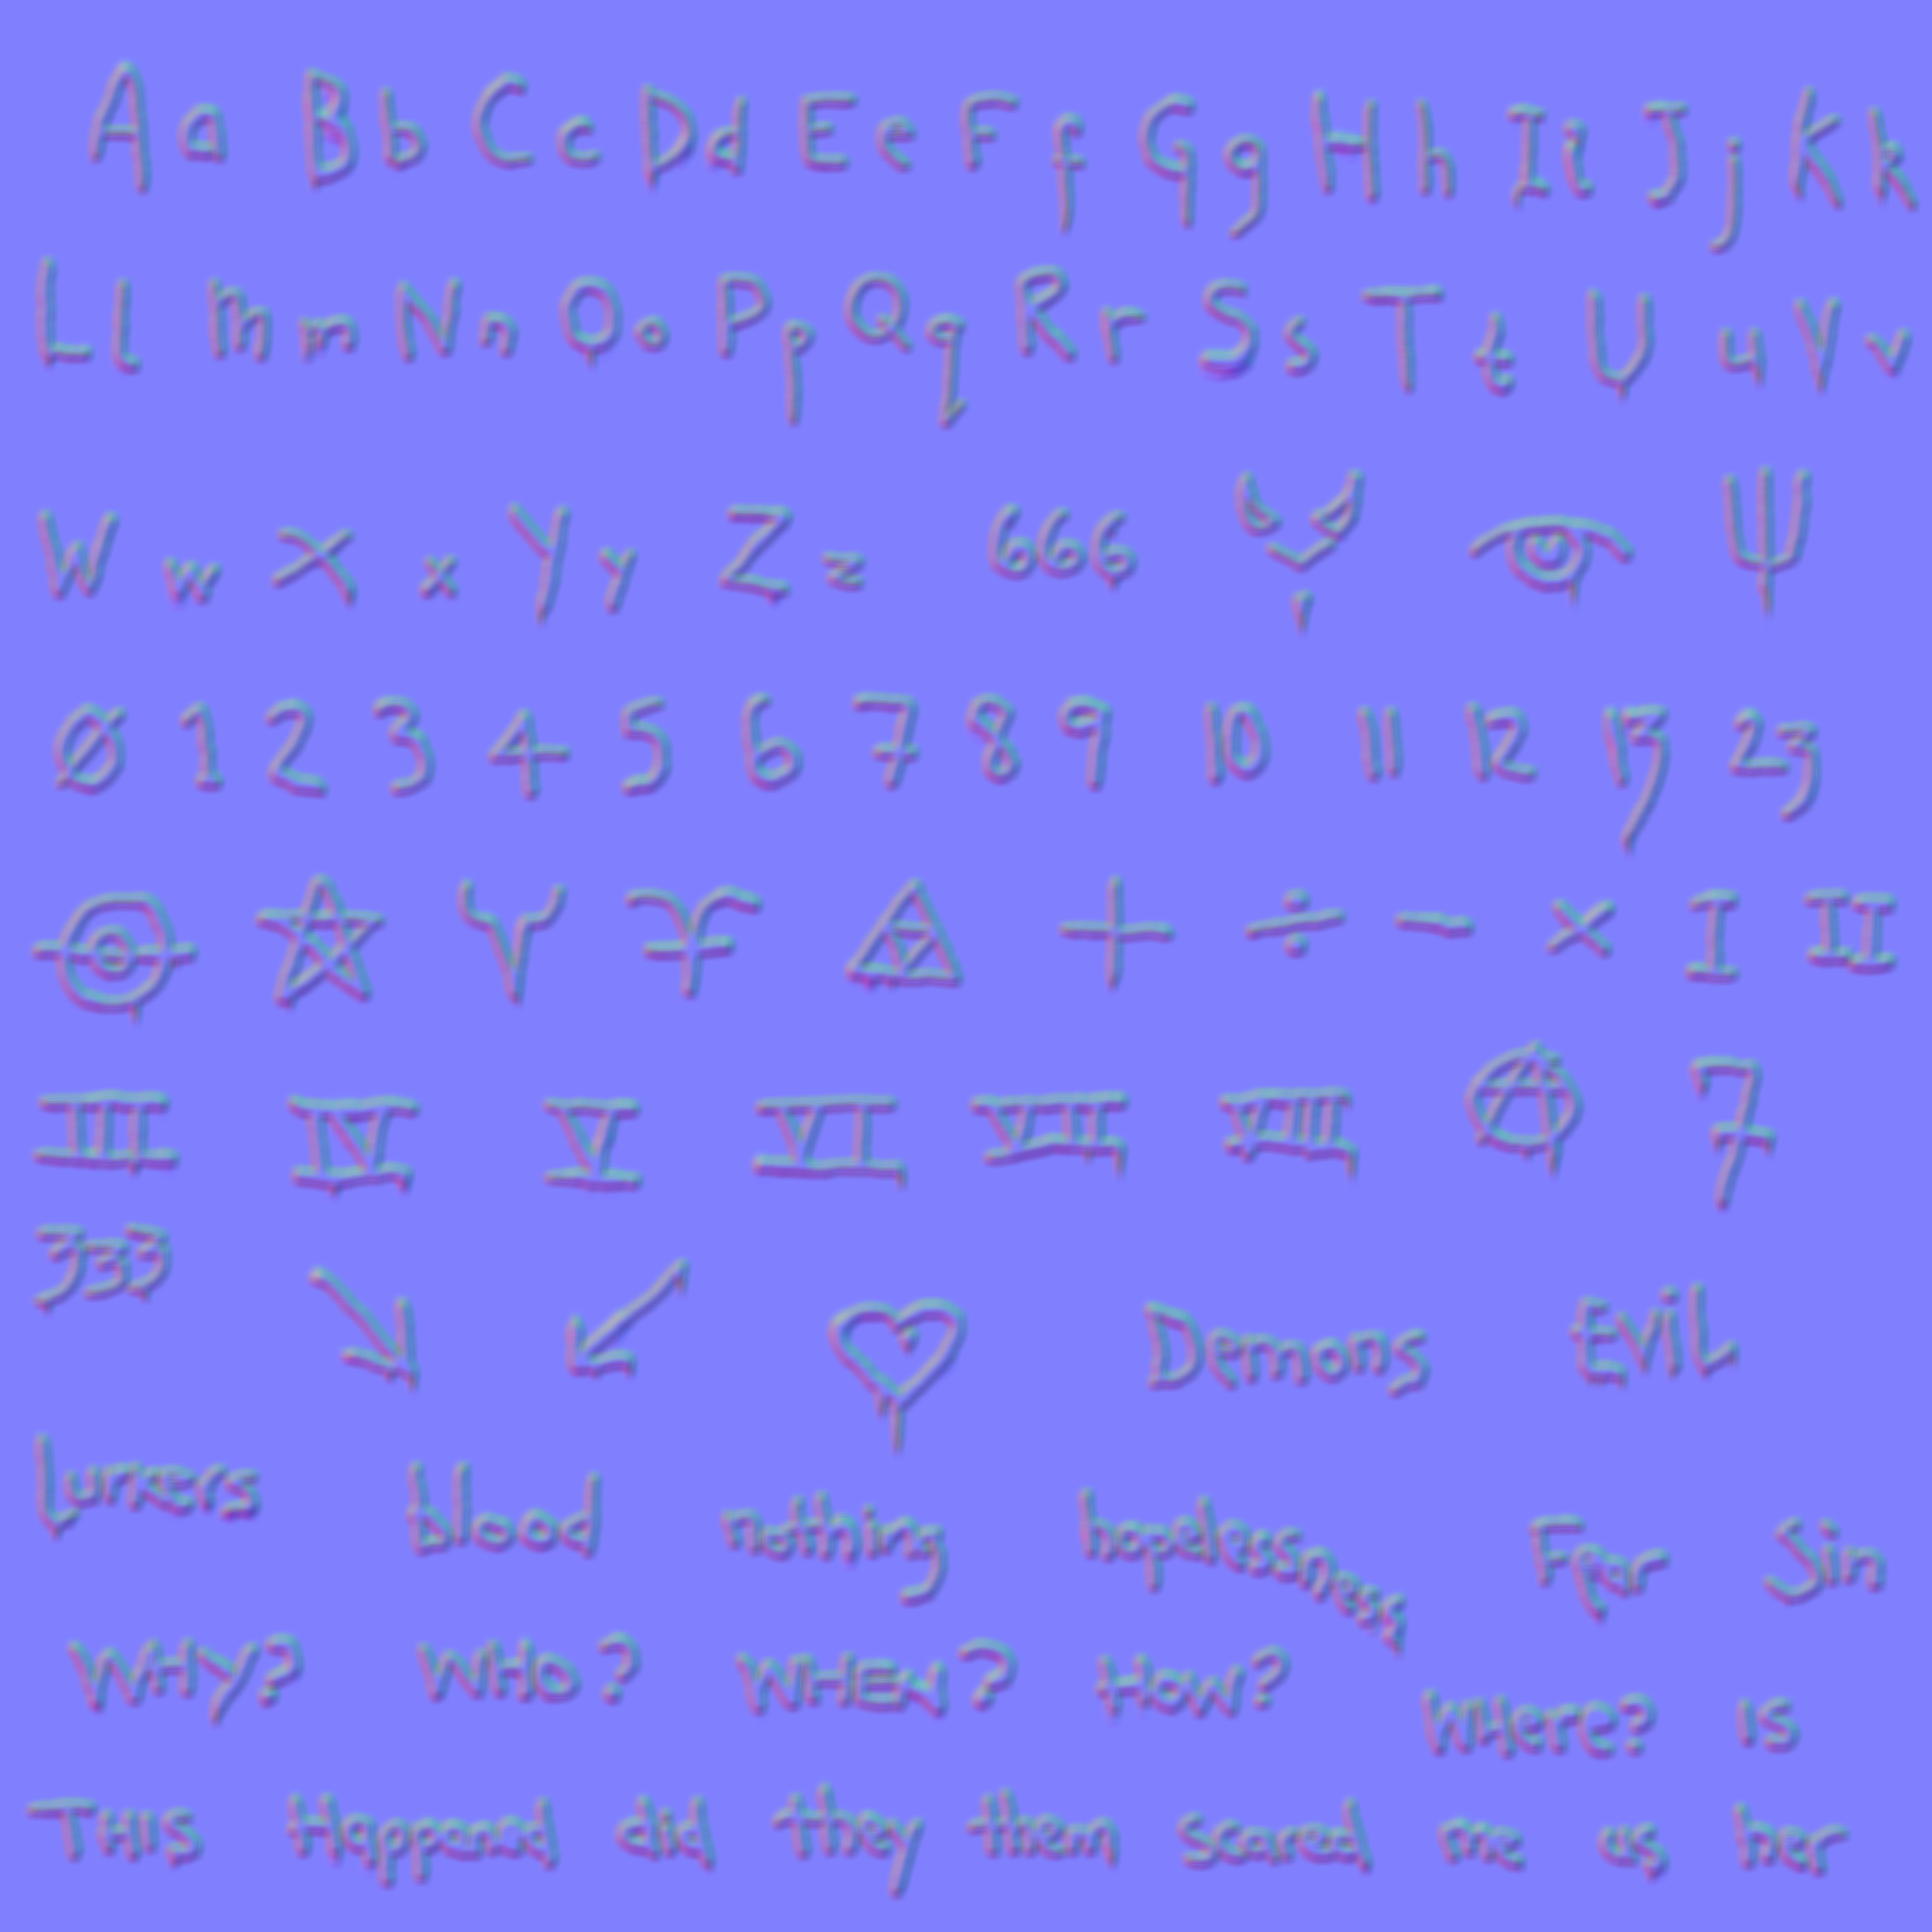 A a B b C c D d E e F f G g H h I i J j K k
L l m m N n O o P p Q q R r S s T t U u V v
W w X x Y y Z z 666 Ψ
Ø 1 2 3 4 5 6 7 8 9 10 11 12 13 23
+ ÷ - × I II
III IV V VI VII VIII 7
333 Demons EviL
Lurkers blood nothing hopelessness Fear Sin
WHY? WHO? WHEN? HOW? WHere? IS
THIS Happened did they them scared me us her